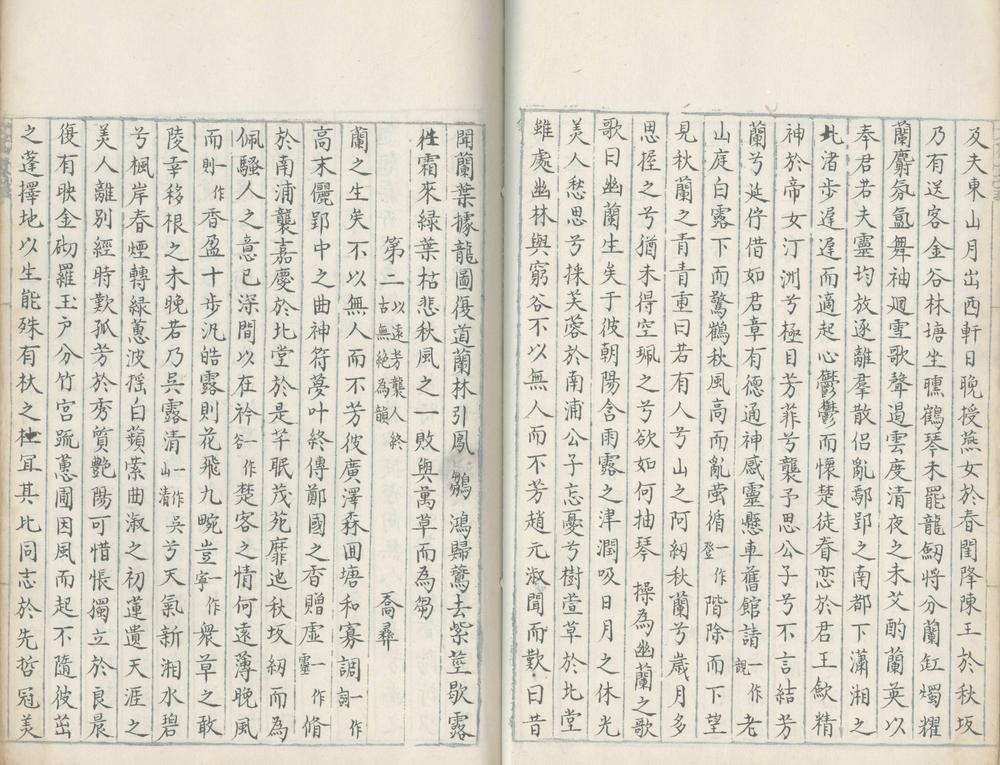 及夫東山月出西軒日晚授燕女於春閨降陳王於秋坂
乃有送客金谷林塘坐曛鶴琴未罷龍劒將分蘭缸燭耀
蘭麝氛氳舞袖迴雪歌聲遏雲度清夜之未艾酌蘭英以
奉君若夫靈均放逐離羣散侶亂鄢郢之南都下瀟湘之
北渚步遟遟而適起心鬱鬱而懷楚徒眷恋於君王歛精
神於帝女汀洲兮極目芳菲兮襲予思公子兮不言結芳
蘭兮延佇借如君章有德通神感靈懸車舊館請一作覩老
山庭白露下而驚鶴秋風高而亂螢循一作登階除而下望
見秋蘭之青青重曰若有人兮山之阿紉秋蘭兮歲月多
思握之兮猶未得空珮之兮欲如何抽琴 操為幽蘭之歌
歌曰幽蘭生矣于彼朝陽含雨露之津潤吸日月之休光
美人愁思兮採芙蓉於南浦公子忘憂兮樹萱草於北堂
雖處幽林與窮谷不以無人而不芳趙元淑聞而歎曰昔
聞蘭葉據龍圖復道蘭林引鳳鶵鴻歸鷰去紫莖歇露
往霜來緑葉枯悲秋風之一敗與萬草而為芻
第二以遠芳襲人終古無絶為韻 喬彞
蘭之生矣不以無人而不芳彼廣澤森囬塘和寡調一作詞
高末儷郢中之曲神符夢叶終傳鄭國之香贈虛一作靈脩
於南浦襲嘉慶於北堂於是芊眠茂苑靡迆秋坂紉而為
佩騷人之意已深間以在衿一作谷楚客之情何遠薄晚風
而則作香盈十步汎皓露則花飛九畹豈一作寧衆草之敢
陵幸移根之未晚若乃吳露清一作山清吳兮天氣新湘水碧
兮楓岸春煙轉緑蕙波徭白蘋縈曲淑之初蓮遺天涯之
美人離別經時歎孤芳於秀質艶陽可惜悵獨立於良晨
復有映金砌羅玉户分竹宮疏蕙圃因風而起不隨彼茁
之蓬擇地以生能殊有杕之杜宜其比同志於先哲冠美